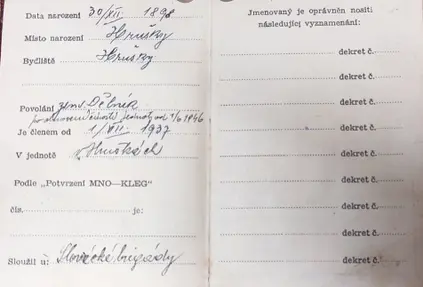 Data narození 30/XII. 1898
Místo narození Hrušky
Bydliště Hrušky
Povolání zem. Dělník
jednoty od 1/6 1946
Je členem od 1/VII. 1937
V jednotě v Hruškách
Podle „Potvrzení MNO—KLEG"
čís. je:
Sloužil u: Slovácké brigády
Jmenovaný je oprávněn nositi
následující vyznamenání:
dekret č.
dekret č.
dekret č.
dekret č.
dekret č.
dekret č.
dekret č.
dekret č.
dekret č.